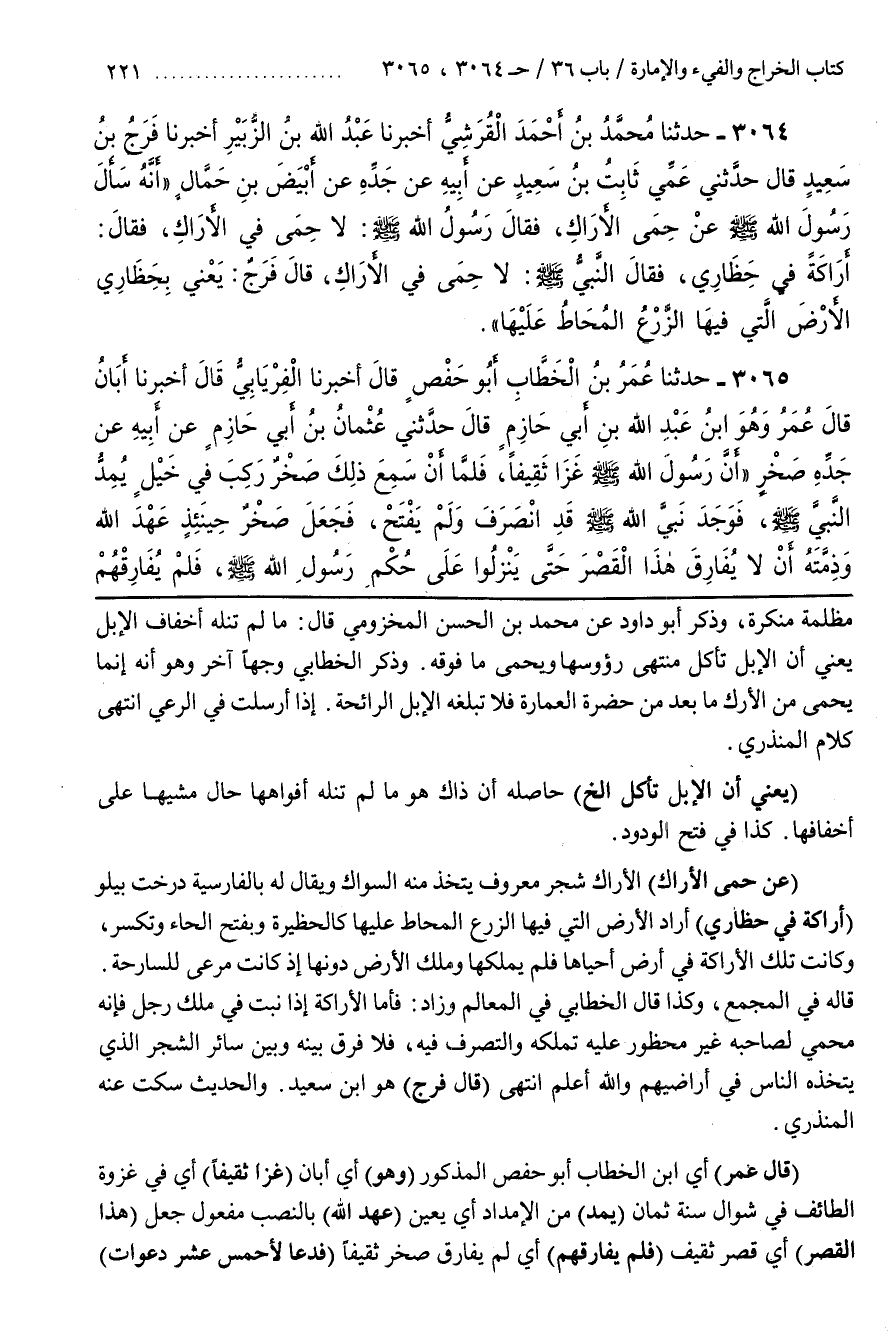 كتاب الخراج والفيء والإمارة / باب ٣٦ / حـ ٣٠٦٤ ، ٣٠٦٥ ....................... ٢٢١
٣٠٦٤ ـ حدثنا مُحمَّدُ بنُ أَحْمَدَ الْقُرَشِيُّ أخبرنا عَبْدُ الله بنُ الزُّبَيْرِ أخبرنا فَرَجُ بنُ
سَعِيدٍ قال حدَّثني عَمِّي ثَابِتُ بنُ سَعِيدٍ عن أبِيهِ عن جَدِّهِ عن أَبْيَضَ بنِ حَمَّالٍ «أَنَّهُ سَأَلَ
رَسُولَ الله ﷺ عنْ حِمَى الأَرَاكِ، فقالَ رَسُولُ الله ﷺ: لا حِمَى في الأَرَاكِ، فقالَ:
أَرَاكَةً في حِظَارِي، فقالَ النَّبيُّ ﷺ: لا حِمَى في الأَرَاكِ، قالَ فَرَجٌ: يَعْني بِحِظَارِي
الأَرْضَ الَّتي فيهَا الزَّرْعُ المُحَاطُ عَلَيْهَا».
٣٠٦٥ ـ حدثنا عُمَرُ بنُ الْخَطَّابِ أَبُو حَفْصٍ قالَ أخبرنا الْفِرْيَابِيُّ قَالَ أخبرنا أَبَانُ
قالَ عُمَرُ وَهُوَ ابنُ عَبْدِ الله بنِ أَبي حَازِمٍ قالَ حدَّثني عُثْمانُ بنُ أَبي حَازِمٍ عن أَبِيهِ عن
جَدِّهِ صَخْرٍ «أَنَّ رَسُولَ الله ﷺ غَزَا ثَقِيفاً، فَلَمَّا أَنْ سَمِعَ ذلِكَ صَخْرٌ رَكِبَ في خَيْلٍ يُمِدُّ
النبيَّ ﷺ، فَوَجَدَ نَبيَّ الله ﷺ قَدِ انْصَرَفَ وَلَمْ يَفْتَحْ، فَجَعَلَ صَخْرٌ حِينَئِذٍ عَهْدَ الله
وَذِمَّتَهُ أَنْ لا يُفَارِقَ هٰذَا الْقَصْرَ حَتَّى يَنْزِلُوا عَلَى حُكْمِ رَسُولِ الله ﷺ، فَلمْ يُفَارِقْهُمْ
مظلمة منكرة، وذكر أبو داود عن محمد بن الحسن المخزومي قال: ما لم تنله أخفاف الإبل
يعني أن الإبل تأكل منتهى رؤوسها ويحمى ما فوقه. وذكر الخطابي وجهاً آخر وهو أنه إنما
يحمى من الأرك ما بعد من حضرة العمارة فلا تبلغه الإبل الرائحة. إذا أرسلت في الرعي انتهى
كلام المنذري.
(يعني أن الإبل تأكل الخ) حاصله أن ذاك هو ما لم تنله أفواهها حال مشيها على
أخفافها. كذا في فتح الودود.
(عن حمى الأراك) الأراك شجر معروف يتخذ منه السواك ويقال له بالفارسية درخت بيلو
(أراكة في حظاري) أراد الأرض التي فيها الزرع المحاط عليها كالحظيرة وبفتح الحاء وتكسر،
وكانت تلك الأراكة في أرض أحياها فلم يملكها وملك الأرض دونها إذ كانت مرعى للسارحة.
قاله في المجمع، وكذا قال الخطابي في المعالم وزاد: فأما الأراكة إذا نبت في ملك رجل فإنه
محمي لصاحبه غير محظور عليه تملكه والتصرف فيه، فلا فرق بينه وبين سائر الشجر الذي
يتخذه الناس في أراضيهم والله أعلم انتهى (قال فرج) هو ابن سعيد. والحديث سكت عنه
المنذري.
(قال عمر) أي ابن الخطاب أبو حفص المذكور (وهو) أي أبان (غزا ثقيفاً) أي في غزوة
الطائف في شوال سنة ثمان (يمد) من الإمداد أي يعين (عهد الله) بالنصب مفعول جعل (هذا
القصر) أي قصر ثقيف (فلم يفارقهم) أي لم يفارق صخر ثقيفاً (فدعا لأحمس عشر دعوات)